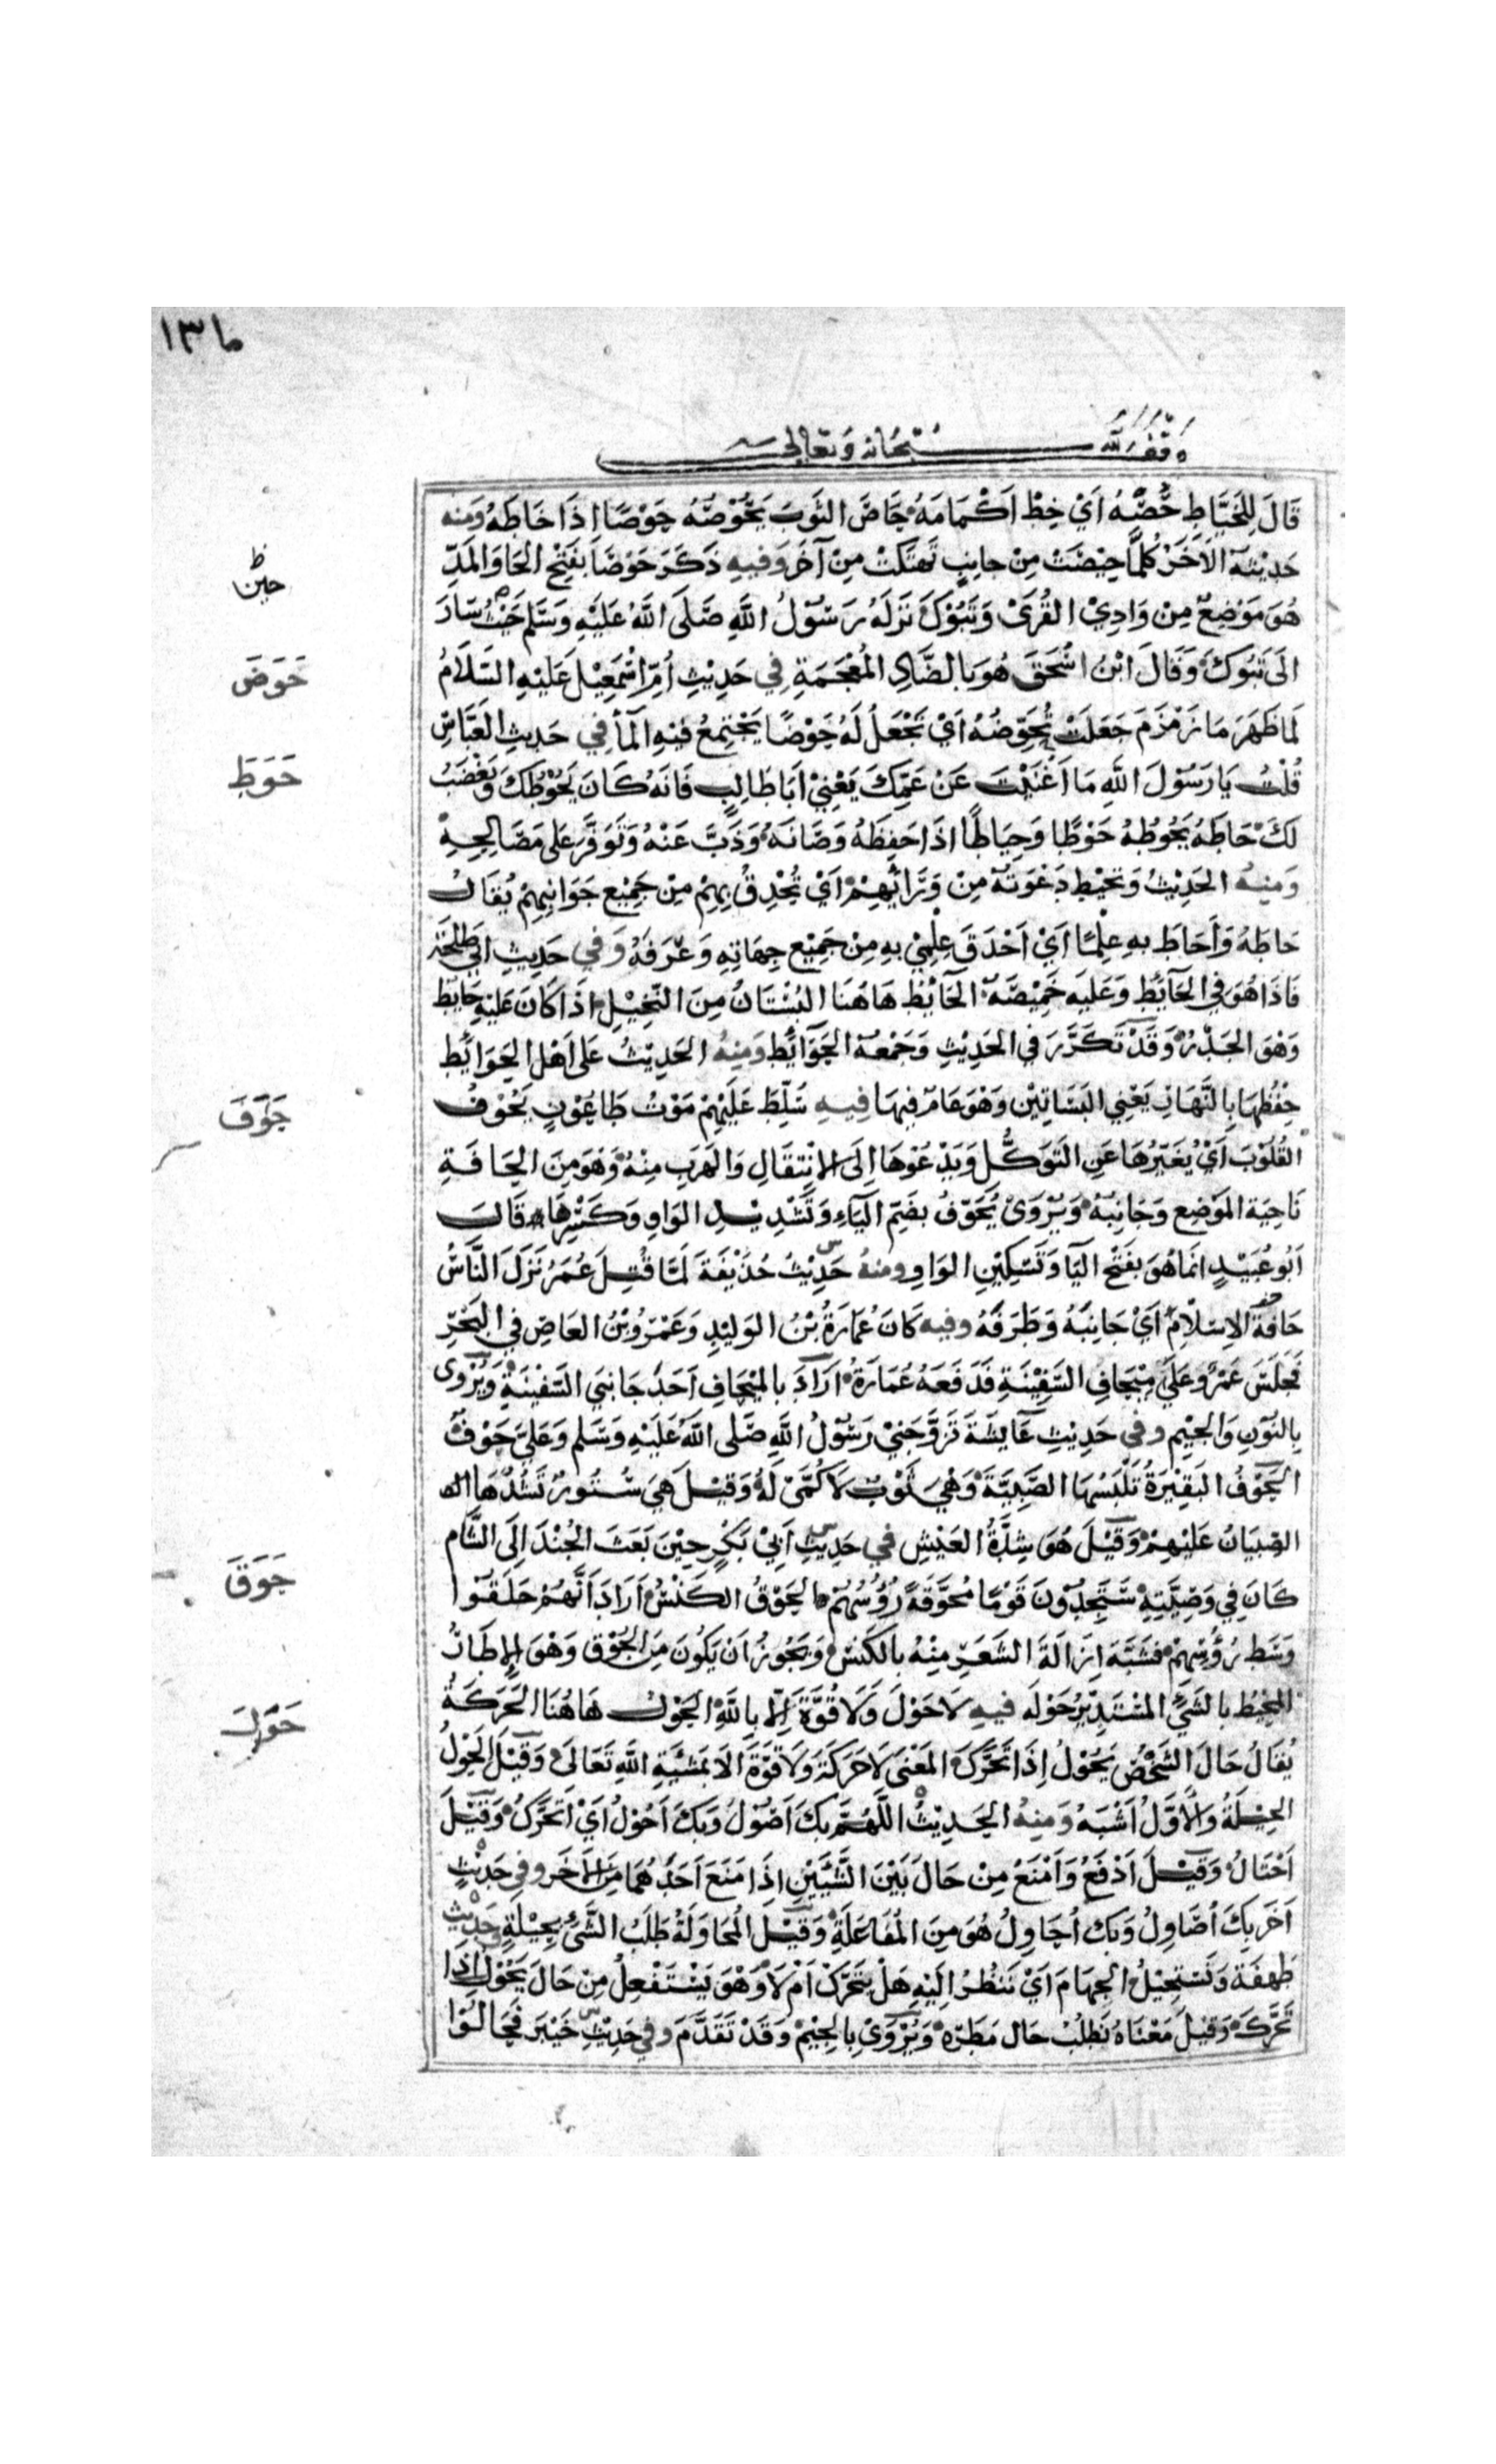 ١٣٥
وقف لله سبحانه وتعالى
قَالَ لِلخَيَّاطِ حُضَّهُ اَيْ خِطْ اَكْمَامَهُ حَاصَ الثَوبَ يَحُوْصُهُ حَوْصًا اذَا خَاطَهُ وَمنه
حَدِيْثهُ الاَخَرُ كُلمَّا حِيْصَتْ مِنْ جانِبٍ تَهَتكَتْ مِنْ آخَرَ وَفيهِ ذَكَرَ حَوْضَاَ بفَتْحِ الحَا وَالمَدِّ
حين
هُوَ مَوْضِعٌ مِنْ وَادِيْ القُرَىْ وَتَبُوْكَ نَزَلَهُ رَسُوْلُ اللَّهِ صَلَى اللَّهُ عَلَيْهِ وَسَلَّم حَيْثُ سَارَ
حَوَضَ
الَى تَبُوْكَ وَقَالَ ابْنُ اسْحَقَ هُوَ بالضَّادِ المُعْجَمَةِ فِي حَدِيْثِ اُمّ اسْمَعِيْلَ عَلَيْهِ السَّلَامُ
لَمَا ظَهَرَ مَا زَمْزَمَ جَعَلَتْ تُحَوِّضُهُ اَيْ تَجْعَلُ لَهُ حَوْضًا يَجْتَمِعُ فيْهِ المَآ فِي حَديثِ العَبَّاسِ
حَوَطَ
قُلْتُ يَا رَسُوْلَ اللَّهِ مَا اَغْنَيْتَ عَنْ عَمِّكَ يَعْنِيْ اَبَا طَالِبٍ فَانَهُ كَانَ يَحُوْطُكَ وَيَغْضَبُ
لَكَ حَاطَهُ يَحُوطُهُ حَوْطًا وَحِيَاطًا اذَا حَفِظَهُ وَصَانَهُ وَذَبَّ عَنْهُ وَتَوَفَّرَ عَلى مَصَالِحِهِ
وَمنهُ الحَدِيْثُ وَتحيْط دَعْوَتهُ مِنْ وَرَائِهِمْ اَيْ تُحْدِقُ بِهِمْ مِنْ جَمِيْعِ جَوَانِبِهِمْ يُقَالُ
حَاطَهُ وَاَحَاطَ بِهِ عِلْمًا اَيْ اَحْدَقَ عِلْمِيْ بهِ مِنْ جَمِيْعِ جِهَاتِهِ وَعَرَفَهُ وَفي حَدِيثِ ابي طَلحَة
فَاذَا هُوَ فِي الحَآئِطِ وَعَليَهِ خَمِيْصَة الحَآئِطُ هَاهُنَا البُسْتَانُ مِنَ النَّخِيْلِ اذَا كَانَ عَليْهِ حَايِط
وَهْوَ الجَدْرُ وَقَدْ تَكَرَّرَ فِي الحَدِيْثِ وَجَمْعهُ الحَوَآئِطُ وَمِنهُ الحَدِيْثُ عَلى اَهْل الحَوَائِط
حِفْظُهَا بِالنَّهَارِ يَعْنِي البَسَاتِيْن وَهْوَ عَامّ فِيهَا فِيهِ سُلِّطَ عَلَيْهِمْ مَوْتُ طَاعُوْنٍ يَحُوْفُ
حَوَفَ
القُلُوْبَ اَيْ يُغَيّرُهَا عَنِ التَوَكُّلِ وَيَدْعُوْهَا اِلَى الانْتِقَالِ وَالهَرَبِ مِنْهُ وَهْوَ مِنَ الحَافَةِ
نَاحِيَة المَوْضِعِ وَجَانِبهُ وَيُرْوَىْ يُحَوّفُ بضَمّ اليَآءِ وَتَشْدِيْدِ الوَاوِ وَكَسْرِهَا قَالَ
اَبُو عُبَيْدٍ انمَا هُوَ بفَتْح اليَا وَتَسْكِيْنِ الوَاوِ ومنهُ حَدِيْثُ حُذَيْفَةَ لَمَّا قُتِلَ عُمَرُ نَزَلَ النَّاسُ
حَافَةَ الاِسْلاَمِ اَيْ جَانِبَهُ وَطَرَفَهُ وفيه كَانَ عُمَارَةُ بْنُ الوَليْدِ وَعَمْرُو بْنُ العَاصِ في البَحْرِ
فَجلَسَ عَمْرٌو عَلَى مِيْحَافِ السَّفِيْنَةِ فَدَفَعَهُ عُمَارَةُ اَرَادَ بالمِيْحَافِ اَحَدَ جَانبَي السَّفيْنَةِ وَيُرْوَى
بالنُوْنِ وَالجِيْمِ وفي حَدِيْثِ عَايشَةَ تَزَوَّجَنِيْ رَسُوْلُ اللَّهِ صَلَّى اللَّهُ عَلَيْهِ وَسَلم وَعَليَّ حَوْفٌ
الحَوْفُ البَقِيْرَةُ تَلْبَسُهَا الصَّبِيَّةَ وَهْيَ ثَوْبٌ لاَ كُمَّىْ لَهُ وَقيْلَ هِيَ سُتُورٌ تَشُدُّهَا
الصِّبيَانُ عَلَيْهِمْ وَقيْلَ هُوَ شِدَّةُ العَيْشِ في حَدِيْثِ اَبِيْ بَكْرٍ حِيْنَ بَعَثَ الجُنْدَ اِلَى الشَّام
حَوَقَ
كَانَ فِي وَصِيَّتِهِ سَتَجِدُوْنَ قَوْمًا مُحَوَّقَةً رُؤُسُهُمْ الحَوْقُ الكَنْسُ اَرَادَ اَنَّهُمْ حَلَقُوْا
وَسَط رُؤُسِهِمْ فشَبَّهَ اِزَالَةَ الشَعَرِ مِنْهُ بالكَنسِ وَيَجُوزُ اَنْ يَكُونَ مِنَ الحُوْقِ وَهْوَ الاِطَارُ
المحِيْطُ بالشَيْءِ المُسْتَدِيْرِ حَوْلَهُ فيهِ لاَ حَوْلَ وَلاَ قُوَّةَ اِلاَّ بِاللَّهِ الحَوْلُ هَاهُنَا الحَرَكَةُ
حَوَلَ
يُقَالُ حَالَ الشَخْصُ يَحُوْلُ اِذَا تَحَرَّكَ المَعْنَى لاَ حَرَكَةَ وَلاَ قُوَّةَ الاَ بمَشئَةِ اللَّهِ تَعَالَى وَقيْلَ الحَوْلُ
الحِيْلَةُ وَالاَوَّلُ اَشْبَه وَمِنهُ الحَدِيْثُ اللَّهُمَّ بكَ اَصُوْلُ وَبكَ اَحُوْلُ اَيْ اَتحَرَّكُ وَقيْلَ
اَحْتَالُ وَقيْلَ اَدْفَعُ وَاَمْنَعُ مِنْ حَالَ بَيْنَ الشَّيْئَيْنِ اِذَا مَنَعَ اَحَدَهُمَا مِنَ الاَخَرِ وفي حَدِيْثٍ
آخَر بكَ اُصَاوِلُ وَبكَ اُحَاوِلُ هُوَ مِنَ المُفَاعَلَةِ وَقيْلَ المُحَاوَلَةُ طَلَبُ الشَّيْءِ بحِيْلَةٍ وفي حَدِيْثِ
طَهفَةَ وَنَسْتَحِيْلُ الجِهَامَ اَيْ نَنظُرُ اِلَيْهِ هَلْ يَتَحَرَّكُ اَمْ لاَ وَهْوَ يَسْتَفْعِلُ مِنْ حَالَ يَحُوْلُ اِذَا
تَحَرَّكَ وَقيْلَ مَعْنَاهُ نَطْلُبُ حَال مَطَرِهِ وَيُرْوَىْ بالجِيْمِ وَقَدْ تَقَدَّمَ وفي حَدِيْثِ خَيْبَر فَحَالُوْا